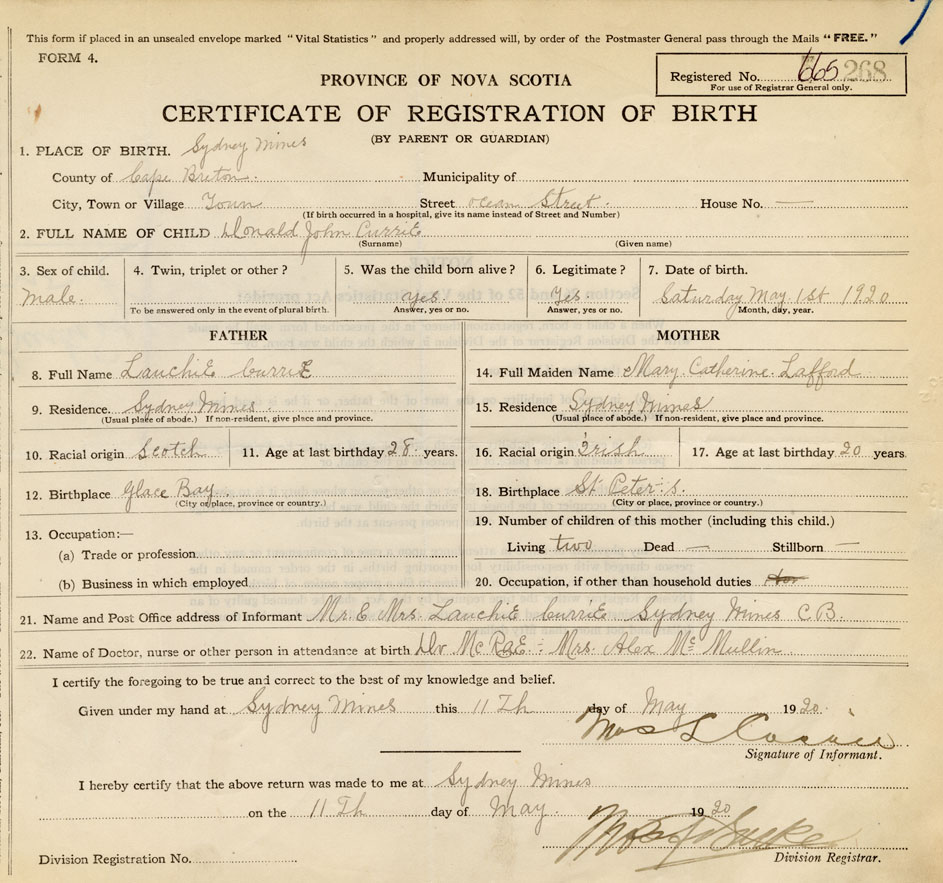 This form if placed in an unsealed envelope marked "Vital Statistics" and properly addressed will, by order of the Postmaster General pass through the Mails "FREE."
FORM 4.
PROVINCE OF NOVA SCOTIA
Registered No. 665 268
For use of Registrar General only.
CERTIFICATE OF REGISTRATION OF BIRTH
(BY PARENT OR GUARDIAN)
1. PLACE OF BIRTH. Sydney Mines
County of Cape Breton. Municipality of
City, Town or Village Town Street ocean Street. House No. —
(If birth occurred in a hospital, give its name instead of Street and Number)
2. FULL NAME OF CHILD Donald John Currie
(Surname) (Given name)
3. Sex of child. 4. Twin, triplet or other? 5. Was the child born alive? 6. Legitimate? 7. Date of birth.
male. yes. Yes. Saturday May 1st 1920
To be answered only in the event of plural birth. Answer, yes or no. Answer, yes or no. Month, day, year.
FATHER MOTHER
8. Full Name Lauchie Currie 14. Full Maiden Name Mary. Catherine. Lafford
9. Residence. Sydney Mines. 15. Residence Sydney Mines
(Usual place of abode.) If non-resident, give place and province. (Usual place of abode.) If non-resident, give place and province.
10. Racial origin Scotch 11. Age at last birthday 28. years. 16. Racial origin Irish 17. Age at last birthday 20 years.
12. Birthplace Glace Bay. 18. Birthplace St Peter's.
(City or place, province or country.) (City or place, province or country.)
13. Occupation:— 19. Number of children of this mother (including this child.)
(a) Trade or profession Living two Dead — Stillborn —
(b) Business in which employed 20. Occupation, if other than household duties
21. Name and Post Office address of Informant Mr. & Mrs. Lauchie Currie Sydney Mines C B.
22. Name of Doctor, nurse or other person in attendance at birth Dr McRae: Mrs. Alex Mc Mullin
I certify the foregoing to be true and correct to the best of my knowledge and belief.
Given under my hand at Sydney Mines this 11 Th day of May 1920.
Mrs L Currie
Signature of Informant.
I hereby certify that the above return was made to me at Sydney Mines
on the 11 Th day of May. 1920
Division Registration No. Division Registrar.